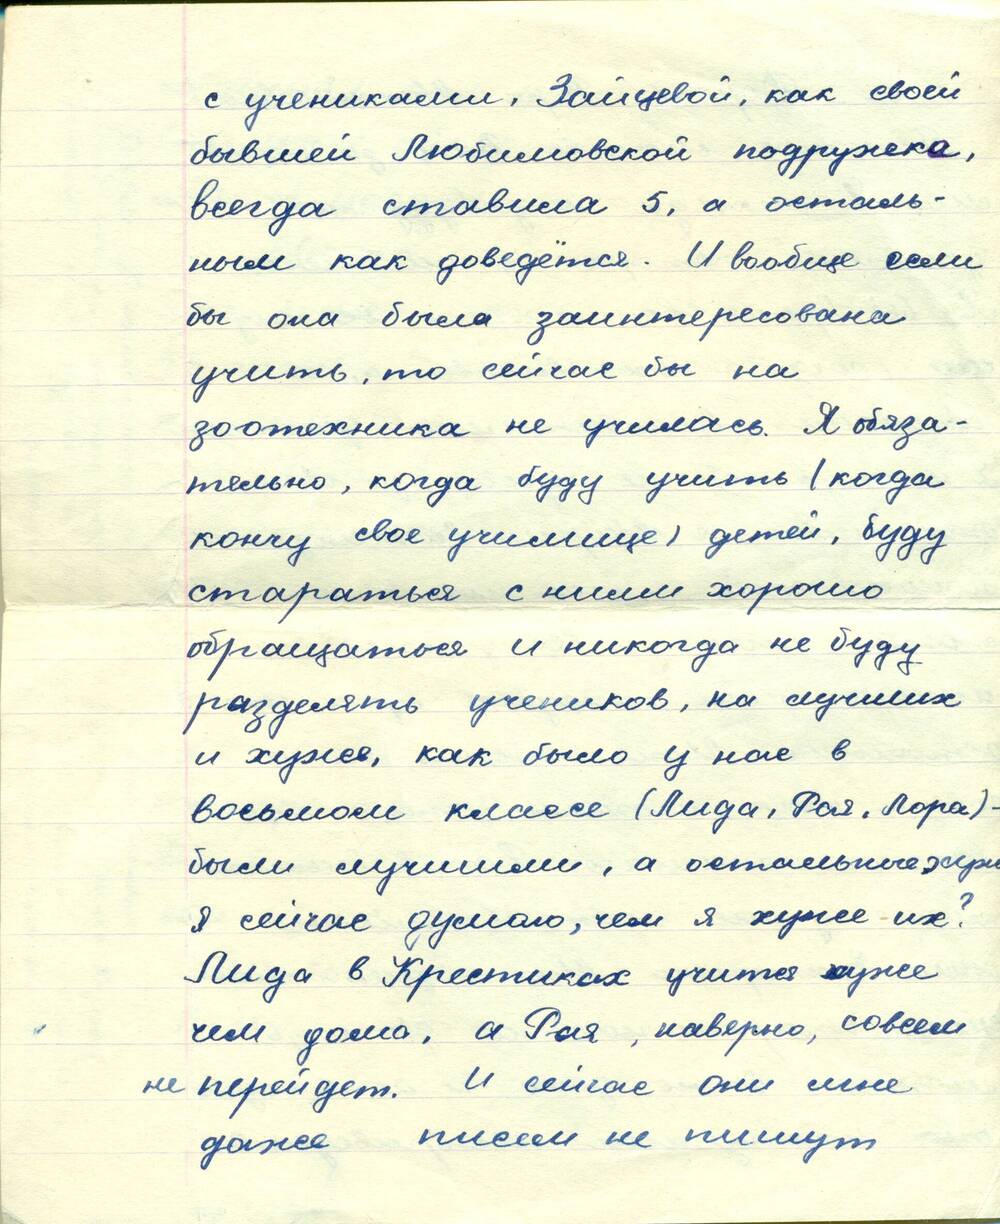 с учениками, Зайцевой, как своей
бывшей Любимовской подружка,
всегда ставила 5, а осталь-
ным как доведётся. И вообще если
бы она была заинтересована
учить, то сейчас бы на
зоотехника не училась. Я обяза-
тельно, когда буду учить (когда
кончу свое училище) детей, буду
стараться с ними хорошо
обращаться и никогда не буду
разделять учеников, на лучших
и хуже, как было у нас в
восьмом классе (Лида, Рая, Лора) -
были лучшими, а остальные
Я сейчас думаю, чем я хуже их?
Лида в Крестиках учится хуже
чем дома, а Рая, наверно, совсем
не перейдет. И сейчас они мне
даже писем не пишут